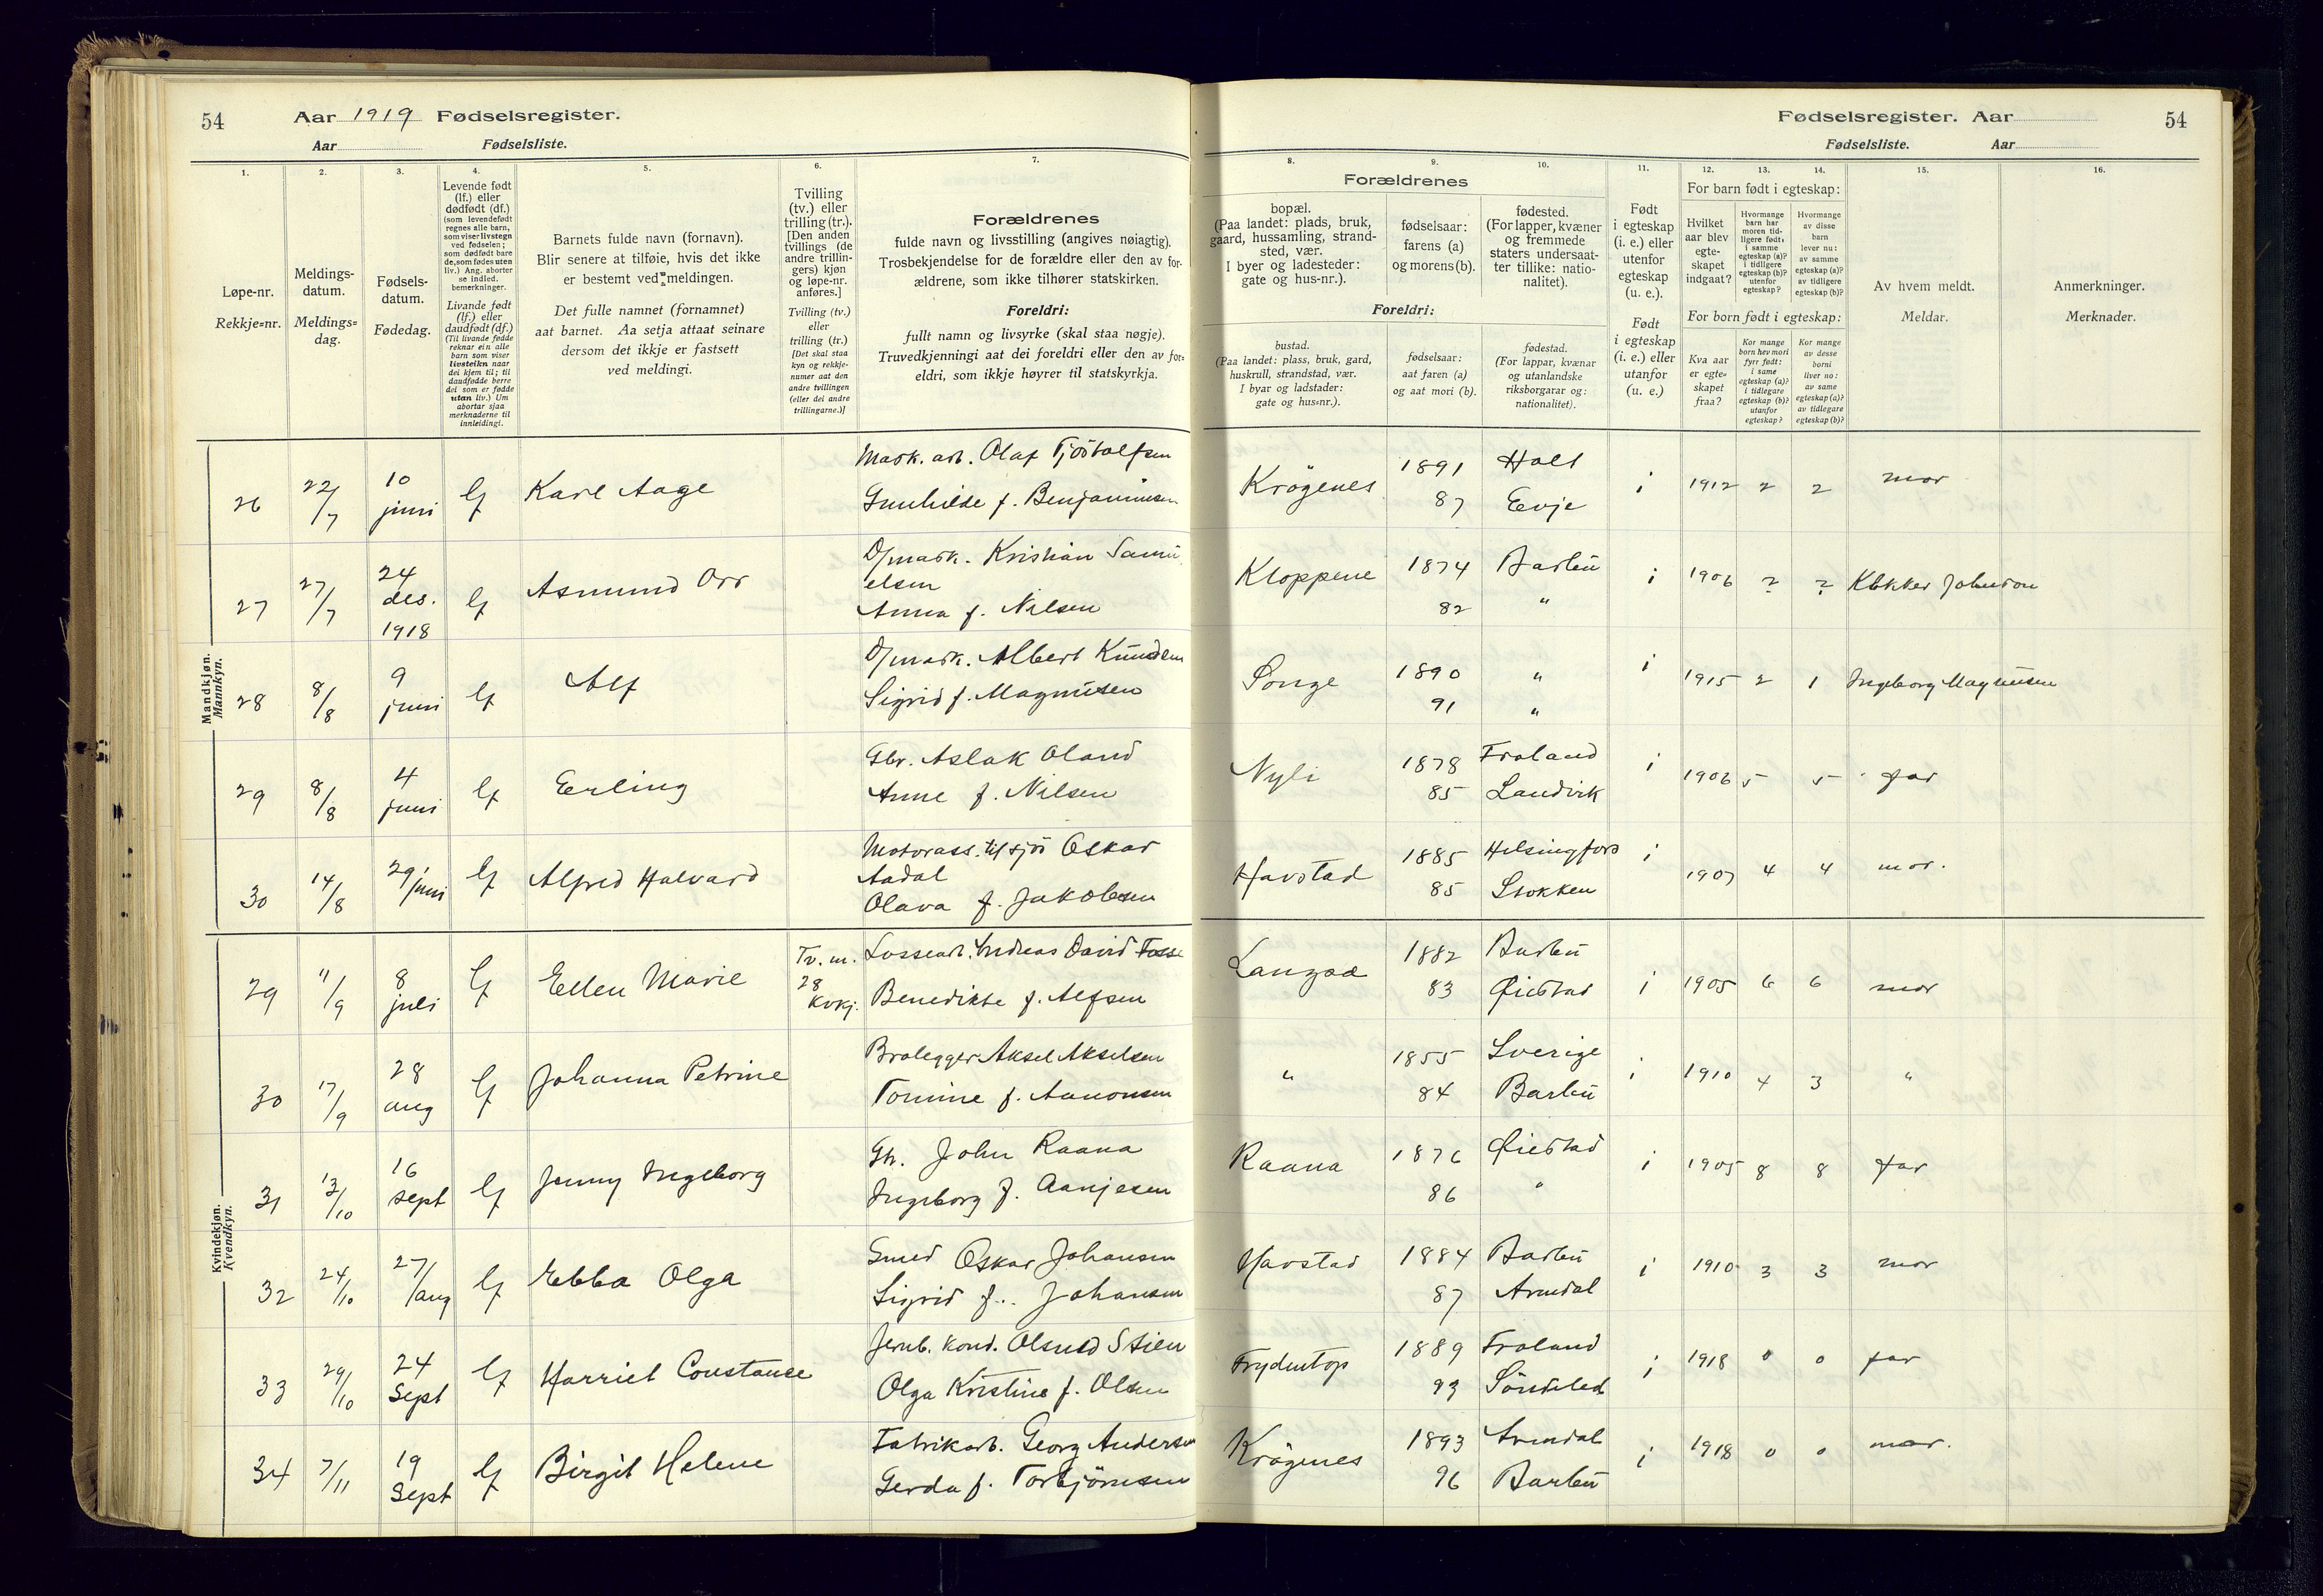 54 Aar 1919 Fødselsregister.
Aar Fødselsliste.
Fødselsregister. Aar 54
Fødselsliste. Aar
1. 2. 3. 4. 5. 6. 7. 8. 9. 10. 11. 12. 13. 14. 15. 16.
Løpe-nr.
Rekkje=nr.
Meldings-
datum.
Meldings=
dag.
Fødsels-
datum.
Fødedag.
Levende født
(lf.) eller
dødfødt (df.)
(som levendefødt
regnes alle barn,
som viser livstegn
ved fødselen;
som dødfødt bare
de, som fødes uten
liv.) Ang. aborter
se indled.
bemerkninger.
Livande født
(lf.) eller
daudfødt (df.)
(Til livande fødde
reknar ein alle
barn som viser
livsteikn naar
dei kjem til; til
daudfødde berre
dei som er fødde
utan liv.) Um
abortar sjaa
merknaderne til
innleidingi.
Barnets fulde navn (fornavn).
Blir senere at tilføie, hvis det ikke
er bestemt ved meldingen.
Det fulle namnet (fornamnet)
aat barnet. Aa setja attaat seinare
dersom det ikkje er fastsett
ved meldingi.
Tvilling
(tv.) eller
trilling (tr.).
[Den anden
tvillings (de
andre trillin-
gers) kjøn
og løpe-nr.
anføres.]
Tvilling (tv.)
eller
trilling (tr.)
[Det skal staa
kyn og rekkje-
numer aat den
andre tvillingen
(eller dei andre
trillingarne.)]
Forældrenes
fulde navn og livsstilling (angives nøiagtig).
Trosbekjendelse for de forældre eller den av for-
ældrene, som ikke tilhører statskirken.
Foreldri:
fullt namn og livsyrke (skal staa nøgje).
Truvedkjenningi aat dei foreldri eller den av for=
eldri, som ikkje høyrer til statskyrkja.
Forældrenes
bopæl.
(Paa landet: plads, bruk,
gaard, hussamling, strand-
sted, vær.
I byer og ladesteder:
gate og hus-nr.).
fødselsaar:
farens (a)
og morens (b).
fødested.
(For lapper, kvæner
og fremmede
staters undersaat-
ter tillike: natio-
nalitet).
Foreldri:
bustad.
(Paa landet: plass, bruk, gard,
huskrull, strandstad, vær.
I byar og ladstader:
gate og hus=nr.).
fødselsaar:
aat faren (a)
og aat mori (b).
fødestad.
(For lappar, kvænar
og utanlandske
riksborgarar og:
nationalitet).
Født
i egteskap
(i. e.) eller
utenfor
egteskap
(u. e.).
Født
i egteskap
(i. e.) eller
utanfor
(u. e.)
For barn født i egteskap:
Hvilket
aar blev
egte-
skapet
indgaat?
Hvormange
barn har
moren tid-
ligere født:
i samme
egteskap (a)?
i tidligere
egteskap (b)?
utenfor
egteskap?
Hvormange
av disse
barn
lever nu:
av samme
egteskap (a)?
av tidligere
egteskap (b)?
For born født i egteskap:
Kva aar
er egte=
skapet
fraa?
Kor mange
born hev mori
fyrr født:
i same
egteskap (a)?
i tidlegare
egteskap (b)?
utanfor
egteskap?
Kor mange
av desse
borni
liver no:
av same
egteskap (a)?
av tidlegare
egteskap (b)?
Av hvem meldt.
Meldar.
Anmerkninger.
Merknader.
Mandkjøn.
Mannkyn.
26 22/7 10 juni lf Karl Aage Mask. arb. Olaf Tjöstolfsen
Gunhilde f. Benjaminsen
Krögenes 1891 Holt i 1912 2 2 mor
87 Evje
27 27/7 24 des. 1918 lf Asmund Orr D/mask. Kristian Samu
elsen
Anna f. Nilsen
Kloppene 1874 Barbu i 1906 ? ? Klokker Johnson
82 "
28 8/8 9 juni lf Alf D/mask. Albert Knudsen
Sigrid f. Magnusen
Songe 1890 " i 1915 2 1 Ingeborg Magnusen
91 "
29 8/8 4 juni lf Erling Gbr. Aslak Oland
Anne f. Nilsen
Nyli 1878 Froland i 1906 5 5 far
85 Landvik
30 14/8 29/juni lf Alfred Halvard Motorass. til sjös Oskar
Aadal
Olava f. Jakobsen
Havstad 1885 Helsingfors i 1907 4 4 mor.
85 Stokken
Kvindekjøn.
Kvendkyn.
29 11/9 8 juli lf Ellen Marie Tv. m. 28 kvkj. Lossearb. Andreas David Fosse
Benedikte f. Alfsen
Langsæ 1882 Barbu i 1905 6 6 mor
83 Øiestad
30 17/9 28 aug lf Johanna Petrine Brolegger Aksel Akselsen
Tomine f. Aanonsen
" 1855 Sverige i 1910 4 3 "
84 Barbu
31 13/10 16 sept lf Jenny Ingeborg Gb. John Raana
Ingeborg f. Aanjesen
Raana 1876 Øiestad i 1905 8 8 far
86 "
32 24/10 27/aug lf Ebba Olga Smed Oskar Johansen
Sigrid f. Johansen
Havstad 1884 Barbu i 1910 3 3 mor
87 Arendal
33 29/10 24 Sept lf Harriet Constanse Jernb. kond. Stien
Olga Kristine f. Olsen
Frydentop 1889 Froland i 1918 0 0 far
93 Söndeled
34 7/11 19 Sept lf Birgit Helene Fabrikarb. Georg Andersen
Gerda f. Torbjörnsen
Krögenes 1893 Arendal i 1918 0 0 mor.
96 Barbu